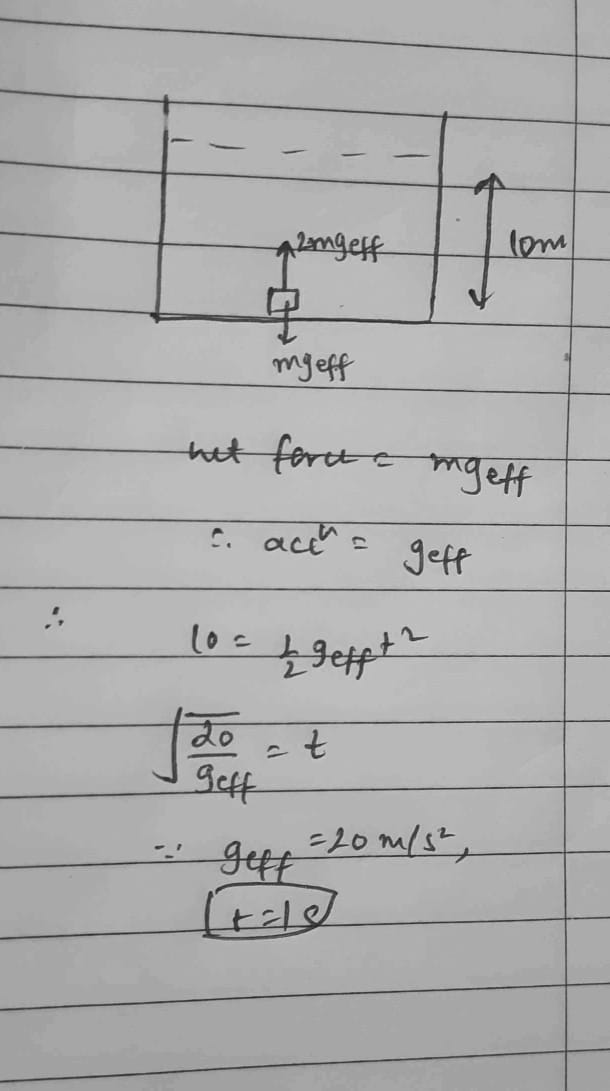 2mgeff
10m
mgeff
net force = mgeff
∴ accⁿ = geff
∴ 10 = 1/2 geff t²
√(20/geff) = t
∵ geff = 20 m/s²,
t=1s